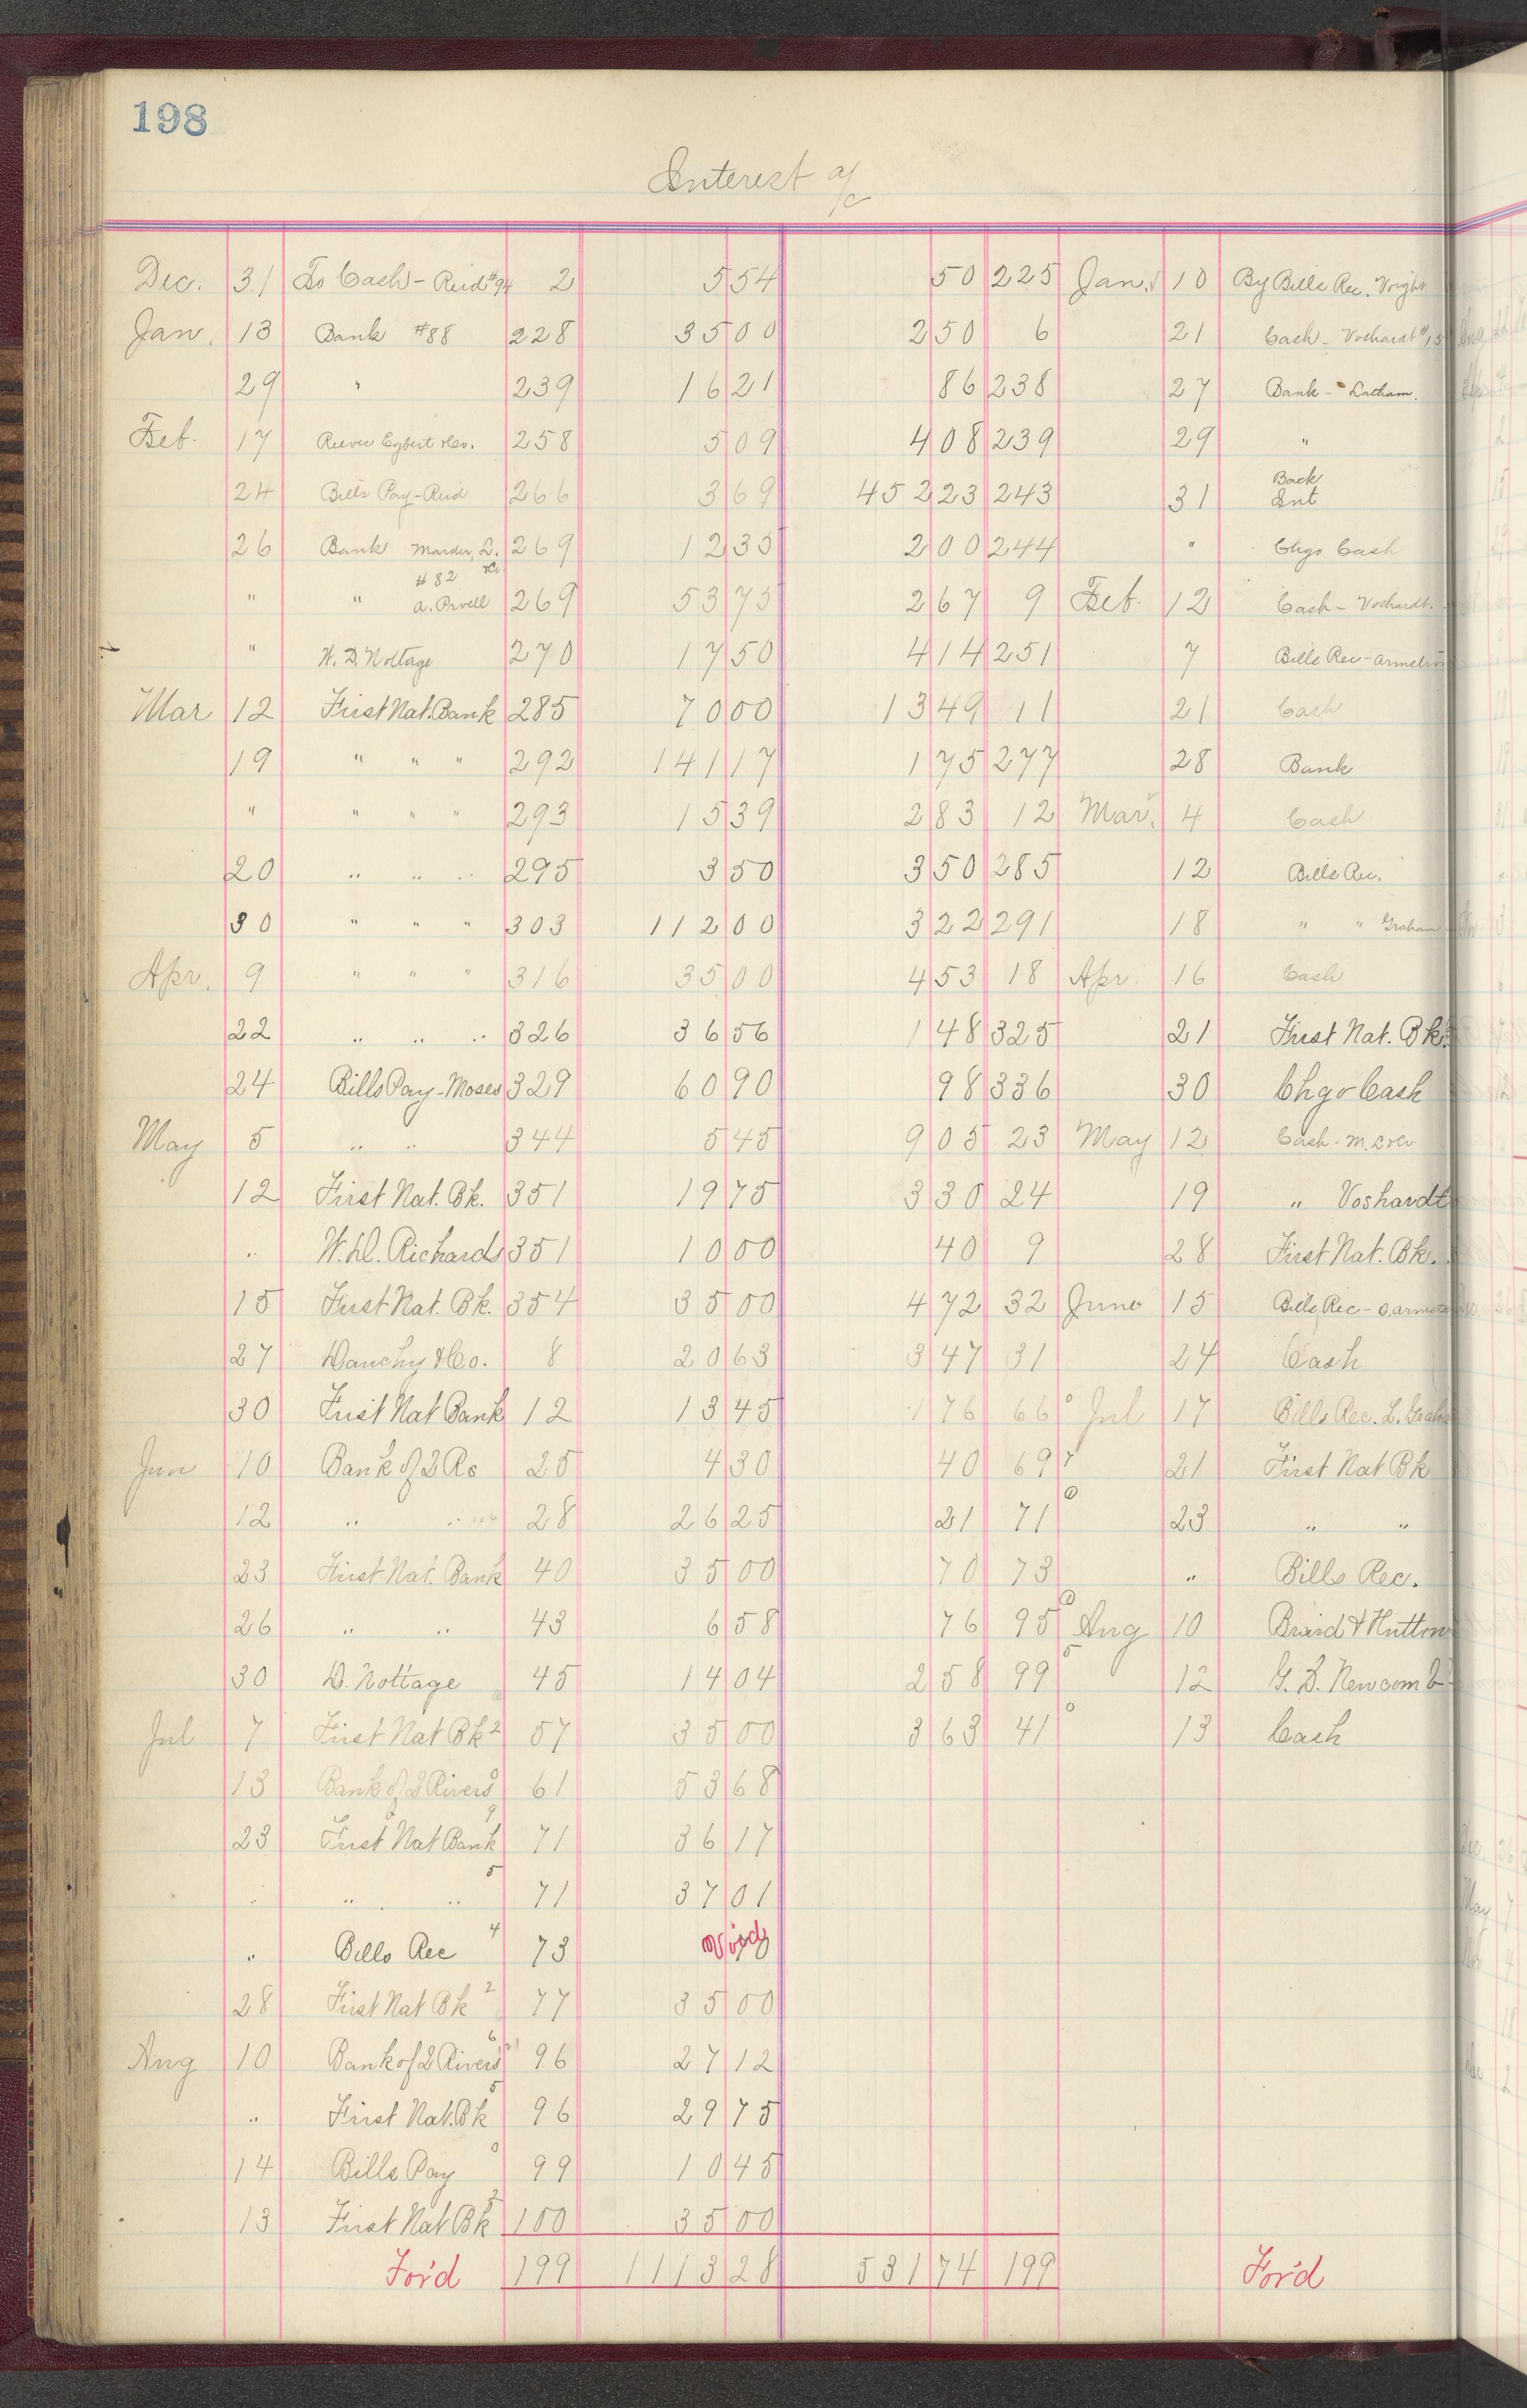 198
Interest a/c
Dec. 31 To Cash - Reid #94 2 5 54 50 225 Jan. 10 By Bills Rec.
Jan. 13 Bank #88 228 35 00 2 50 6 21 Cash - Voshardt
29 " 239 16 21 86 238 27 Bank - Latham.
Feb. 17 258 5 09 4 08 239 29 "
24 Bills Pay - Reid 266 3 69 452 23 243 31 Back Int
26 Bank Marder, L. 269 12 35 2 00 244 " Chgo Cash
" " #82 269 53 75 2 67 9 Feb. 12 Cash - Voshardt.
" W. D. Nottage 270 17 50 4 14 251 7 Bills Rec -
Mar 12 First Nat. Bank 285 70 00 13 49 11 21 Cash
19 " " " 292 141 17 1 75 277 28 Bank
" " " " 293 15 39 2 83 12 Mar. 4 Cash
20 " " " 295 3 50 3 50 285 12 Bills Rec.
30 " " " 303 112 00 3 22 291 18 " " Graham
Apr. 9 " " " 316 35 00 4 53 18 Apr. 16 Cash
22 " " " 326 36 56 1 48 325 21 First Nat. Bk.
24 Bills Pay - Moses 329 60 90 98 336 30 Chgo Cash
May 5 " " 344 5 45 9 05 23 May 12 Cash - M. L & Co
12 First Nat. Bk. 351 19 75 3 30 24 19 " Voshardt
" W. H. Richards 351 10 00 40 9 28 First Nat. Bk.
15 First Nat. Bk. 354 35 00 4 72 32 June 15 Bills Rec -
27 Dauchy & Co. 8 20 63 3 47 31 24 Cash
30 First Nat Bank 12 13 45 1 76 66 0 Jul 17 Bills Rec. L.
Jun 10 Bank of 2 Rs 25 4 30 40 69 7 21 First Nat Bk
12 " " 28 26 25 21 71 0 23 " "
23 First Nat. Bank 40 35 00 70 73 " Bills Rec.
26 " " 43 6 58 76 95 0 Aug 10 Braid & Hutton
30 D. Nottage 45 14 04 2 58 99 5 12 G. B. Newcomb
Jul 7 First Nat Bk 2 57 35 00 3 63 41 0 13 Cash
13 Bank of 2 Rivers 61 53 68
23 First Nat Bank 9 71 36 17
" " " 5 71 37 01
" Bills Rec 4 73 Void
28 First Nat Bk 2 77 35 00
Aug 10 Bank of 2 Rivers 6 96 27 12
" First Nat. Bk 5 96 29 75
14 Bills Pay 0 99 10 45
13 First Nat Bk 100 35 00
For'd 199 1113 28 531 74 199 For'd